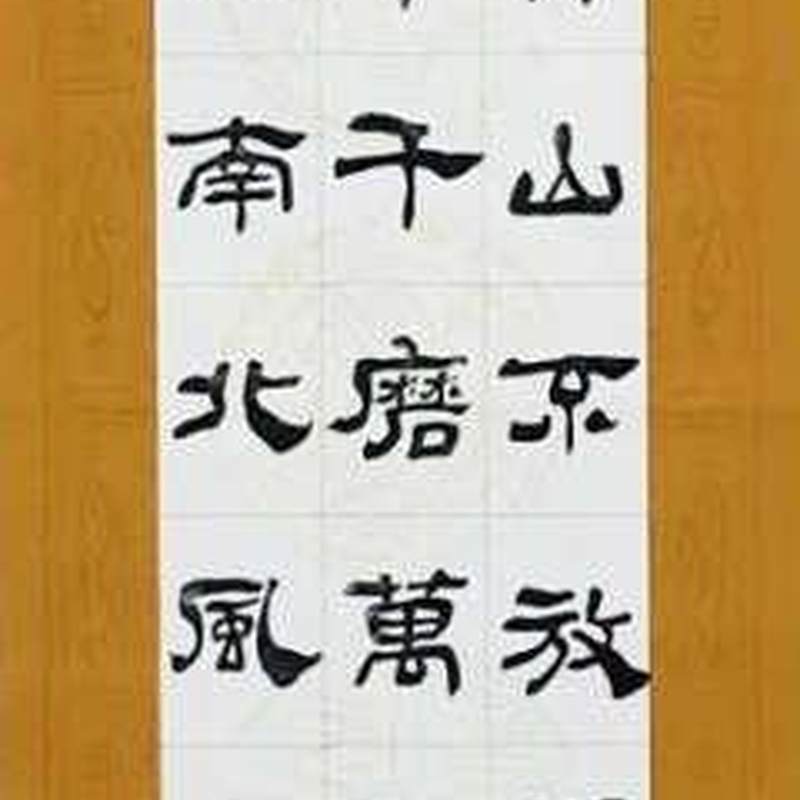 山不放
千磨萬
南北風